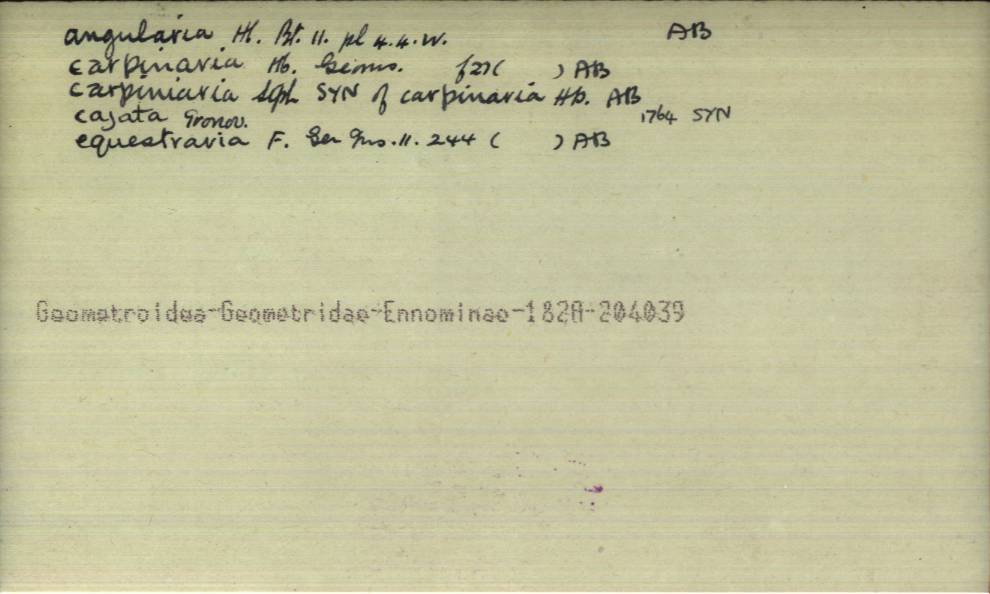 angularia Hl. Bt. 11. pl 4.4.W. AB
carpinaria Hb. Geoms. f27( ) AB
carpiniaria Sph. SYN of carpinaria Hb. AB
cajata Gronov. 1764 SYN
equestraria F. Gen Ins. 11. 244 ( ) AB
Geometroidea-Geometridae-Ennominae-182A-204039